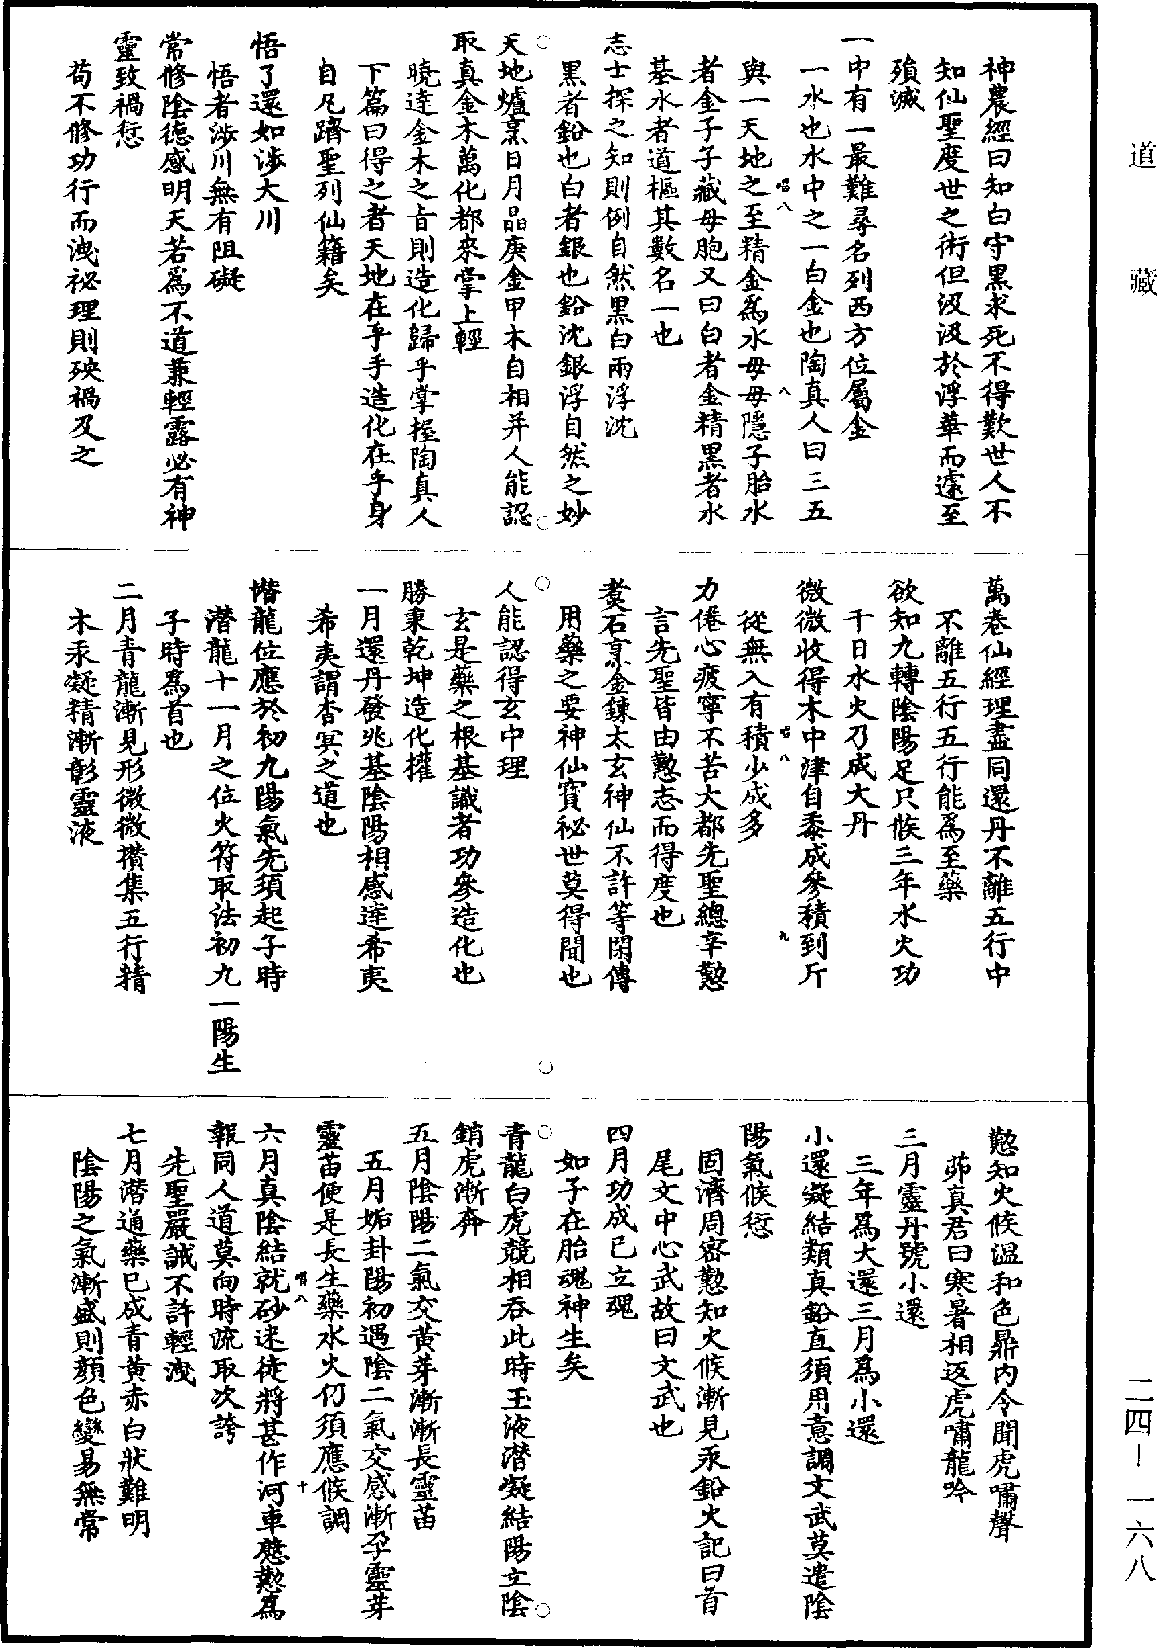 道藏
神農經曰知白守黑求死不得歎世人不
知仙聖度世之術但汲汲於浮華而遽至
殞滅
一中有一最難尋名列西方位屬金
一水也水中之一白金也陶真人曰三五
與一天地之至精金為水母母隱子胎水
者金子子藏母胞又曰白者金精黑者水
基水者道樞其數名一也
志士探之知則例自然黑白兩浮沈
黑者鉛也白者銀也鉛沈銀浮自然之妙
天地爐烹日月晶庚金甲木自相并人能認
取真金木萬化都來掌上輕
曉達金木之旨則造化歸乎掌握陶真人
下篇曰得之者天地在乎手造化在乎身
自凡躋聖列仙籍矣
悟了還如涉大川
悟者涉川無有阻礙
常修陰德感明天若為不道兼輕露必有神
靈致禍愆
苟不修功行而洩祕理則殃禍及之
萬卷仙經理盡同還丹不離五行中
不離五行五行能為至藥
欲知九轉陰陽足只候三年水火功
千日水火乃成大丹
微微收得木中津自黍成參積到斤
從無入有積少成多
力倦心疲寧不苦大都先聖總辛懃
言先聖皆由懃志而得度也
煑石烹金鍊太玄神仙不許等閑傳
用藥之要神仙寶祕世莫得聞也
人能認得玄中理
玄是藥之根基識者功參造化也
勝秉乾坤造化權
一月還丹發兆基陰陽相感達希夷
希夷謂杳冥之道也
潛龍位應於初九陽氣先須起子時
潛龍十一月之位火符取法初九一陽生
子時為首也
二月青龍漸見形微微攢集五行精
木汞凝精漸彰靈液
懃知火候溫和色鼎內令聞虎嘯聲
茆真君曰寒暑相返虎嘯龍吟
三月靈丹號小還
三年為大還三月為小還
小還凝結類真鉛直須用意調文武莫遣陰
陽氣候愆
固濟周密懃知火候漸見汞鉛火記曰首
尾文中心武故曰文武也
四月功成已立魂
如子在胎魂神生矣
青龍白虎競相吞此時玉液潛凝結陽立陰
銷虎漸奔
五月陰陽二氣交黃芽漸漸長靈苗
五月姤卦陽初遇陰二氣交感漸孕靈芽
靈苗便是長生藥水火仍須應候調
六月真陰結就砂迷徒將甚作河車慇懃為
報同人道莫向時流取次誇
先聖嚴誡不許輕洩
七月潛通藥已成青黃赤白狀難明
陰陽之氣漸盛則顏色變易無常
二四－一六八